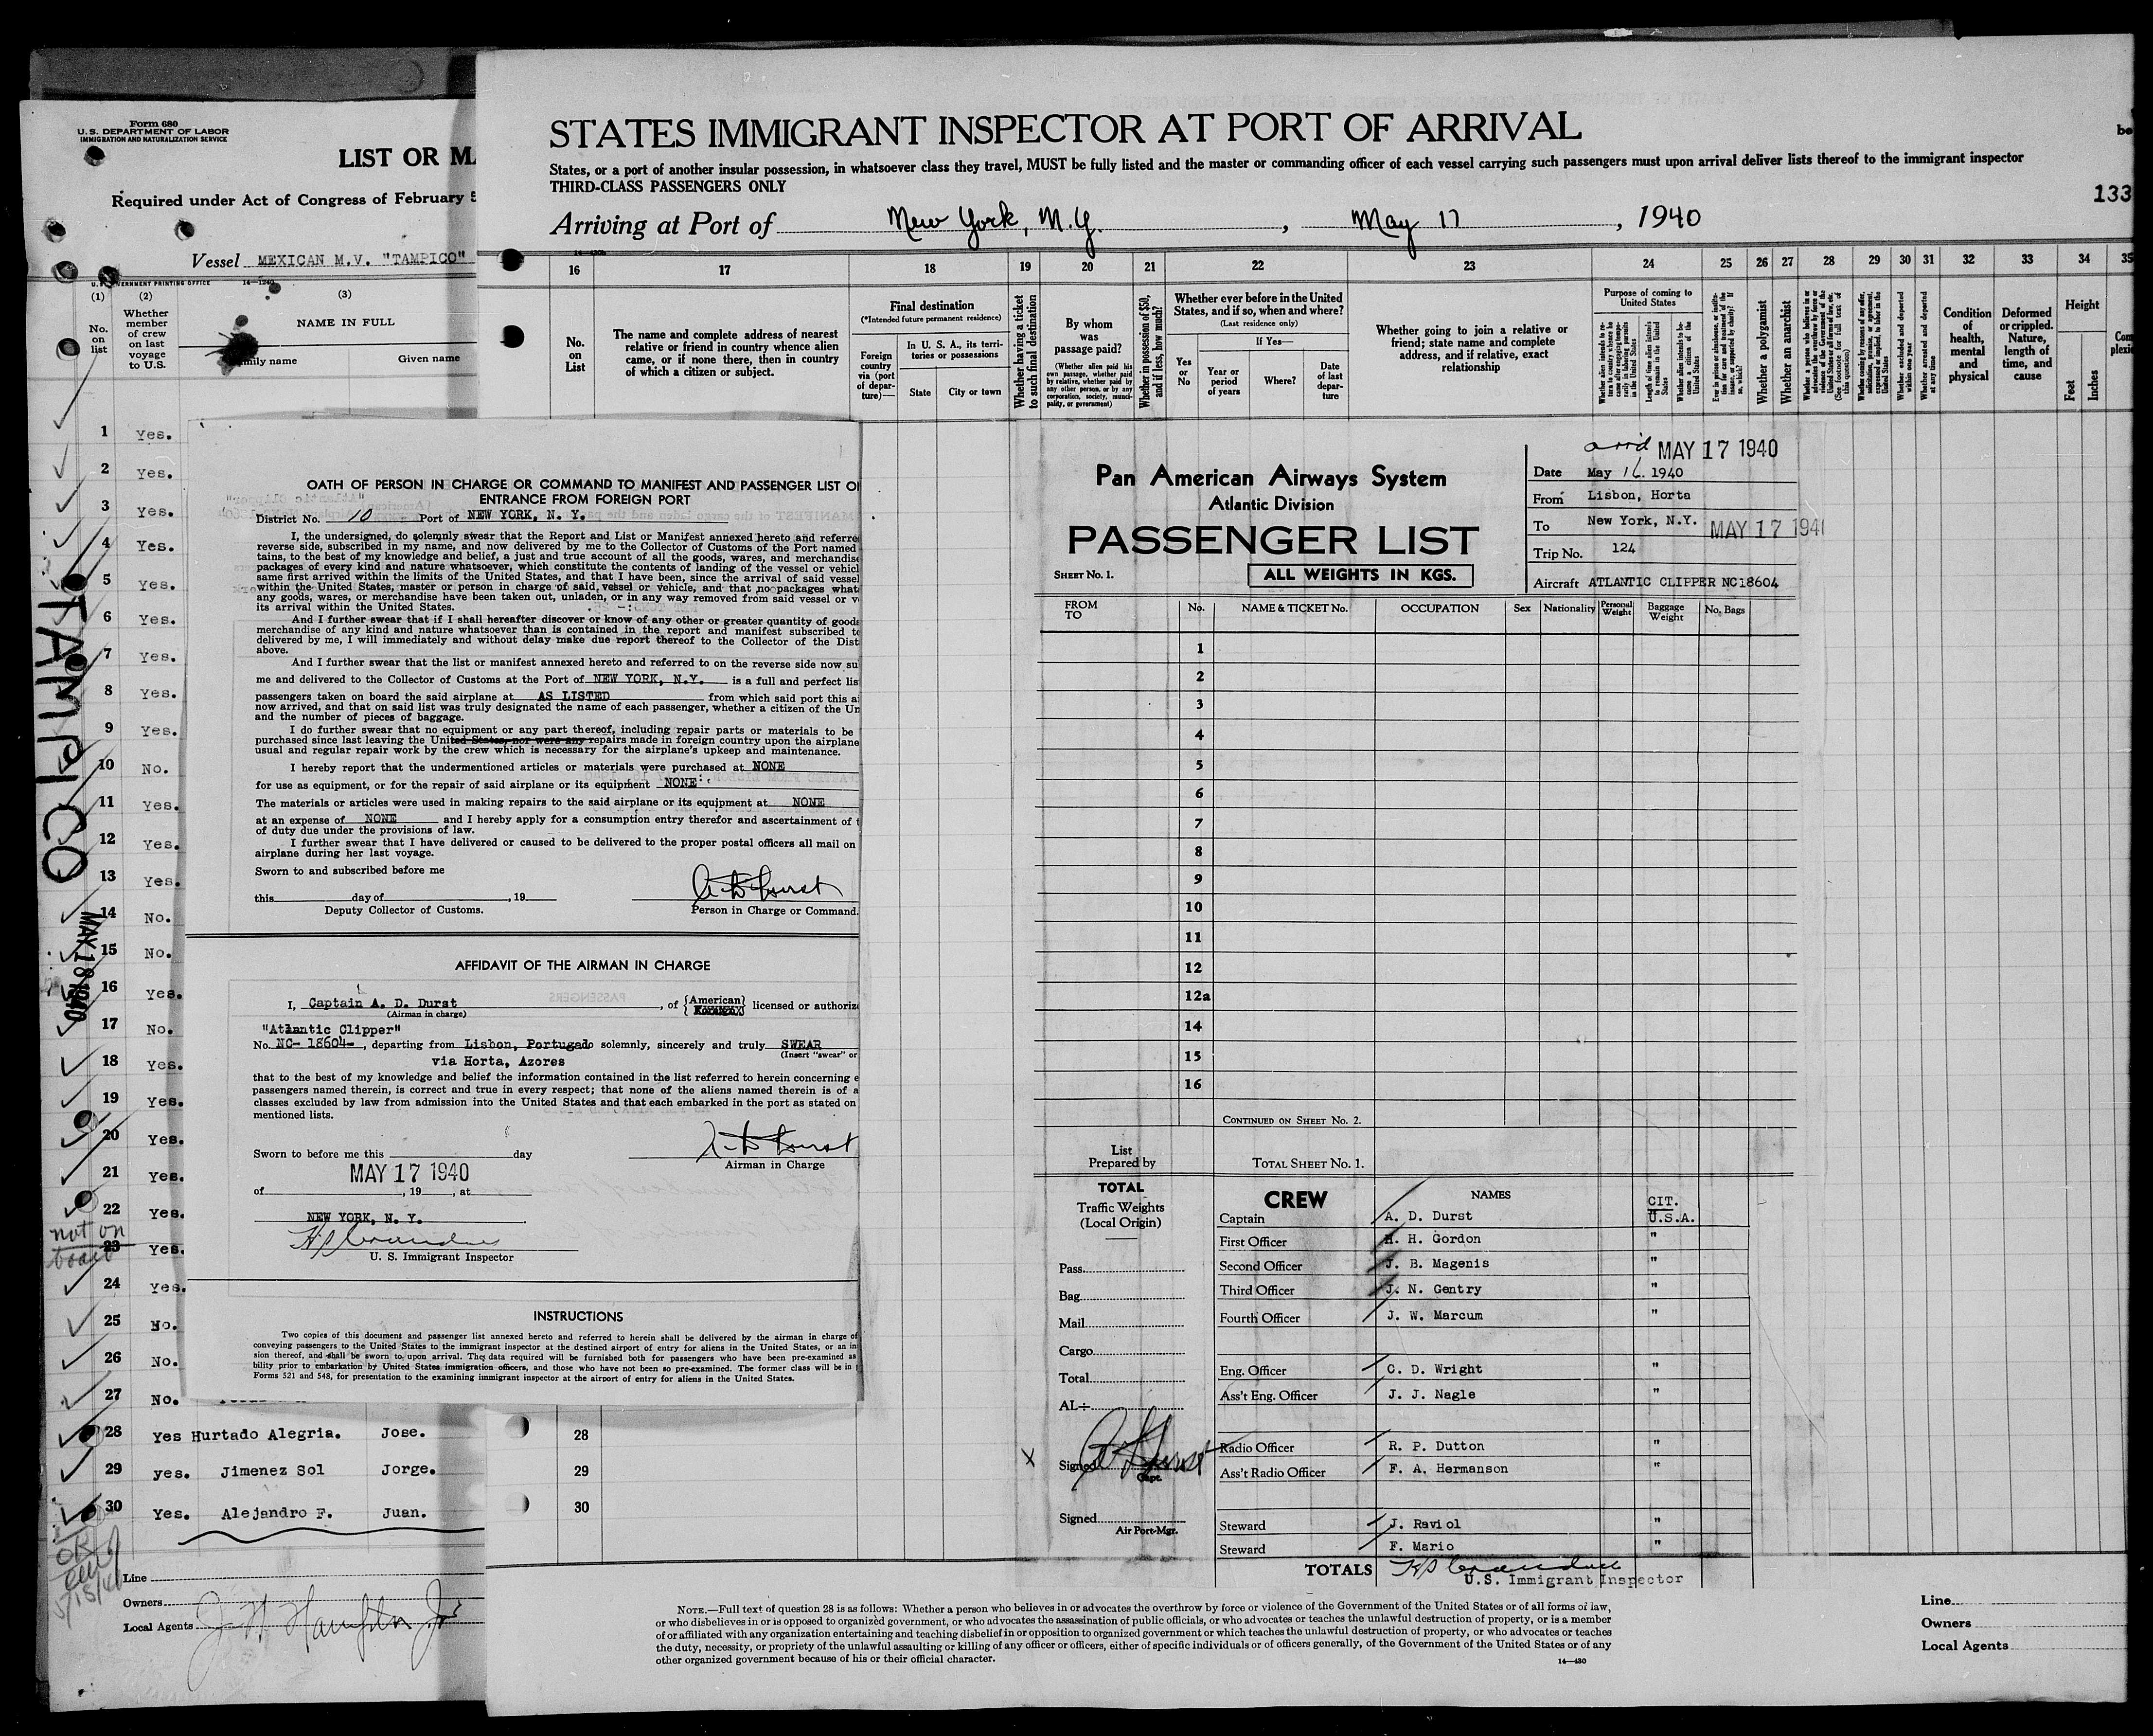 Form 680
U. S. DEPARTMENT OF LABOR
IMMIGRATION AND NATURALIZATION SERVICE
LIST OR MA
Required under Act of Congress of February 5
Vessel MEXICAN M.V. "TAMPICO"
(1) (2) (3)
No. on list
Whether member of crew on last voyage to U.S.
NAME IN FULL
Family name Given name
1 Yes.
2 Yes.
3 Yes.
4 Yes.
5 Yes.
6 Yes.
7 Yes.
8 Yes.
9 Yes.
10 No.
11 Yes.
12 Yes.
13 Yes.
14 No.
15 No.
16 Yes.
17 No.
18 Yes.
19 Yes.
20 Yes.
21 Yes.
22 Yes.
not on board
23 Yes.
24 Yes.
25 No.
26 No.
27 No.
28 Yes Hurtado Alegria. Jose.
29 yes. Jimenez Sol Jorge.
30 Yes. Alejandro F. Juan.
TAMPICO
MAY 18 1940
Line
Owners
Local Agents
STATES IMMIGRANT INSPECTOR AT PORT OF ARRIVAL
States, or a port of another insular possession, in whatsoever class they travel, MUST be fully listed and the master or commanding officer of each vessel carrying such passengers must upon arrival deliver lists thereof to the immigrant inspector
THIRD-CLASS PASSENGERS ONLY
133
Arriving at Port of New York, N.Y., May 17, 1940
16 17 18 19 20 21 22 23 24 25 26 27 28 29 30 31 32 33 34 35
No. on List
The name and complete address of nearest relative or friend in country whence alien came, or if none there, then in country of which a citizen or subject.
Final destination
(*Intended future permanent residence)
Foreign country via (port of departure)—
In U. S. A., its territories or possessions
State City or town
Whether having a ticket to such final destination
By whom was passage paid?
(Whether alien paid his own passage, whether paid by relative, whether paid by any other person, or by any corporation, society, municipality, or government)
Whether in possession of $50, and if less, how much?
Whether ever before in the United States, and if so, when and where?
(Last residence only)
Yes or No
If Yes—
Year or period of years
Where?
Date of last departure
Whether going to join a relative or friend; state name and complete address, and if relative, exact relationship
Purpose of coming to United States
Whether a polygamist
Whether an anarchist
Condition of health, mental and physical
Deformed or crippled. Nature, length of time, and cause
Height
Feet Inches
28
29
30
OATH OF PERSON IN CHARGE OR COMMAND TO MANIFEST AND PASSENGER LIST O
ENTRANCE FROM FOREIGN PORT
District No. 10 Port of NEW YORK, N. Y.
I, the undersigned, do solemnly swear that the Report and List or Manifest annexed hereto and referre
reverse side, subscribed in my name, and now delivered by me to the Collector of Customs of the Port named
tains, to the best of my knowledge and belief, a just and true account of all the goods, wares, and merchandise
packages of every kind and nature whatsoever, which constitute the contents of landing of the vessel or vehicl
same first arrived within the limits of the United States, and that I have been, since the arrival of said vessel
within the United States, master or person in charge of said vessel or vehicle, and that no packages what
any goods, wares, or merchandise have been taken out, unladen, or in any way removed from said vessel or v
its arrival within the United States.
And I further swear that if I shall hereafter discover or know of any other or greater quantity of goods
merchandise of any kind and nature whatsoever than is contained in the report and manifest subscribed to
delivered by me, I will immediately and without delay make due report thereof to the Collector of the Dist
above.
And I further swear that the list or manifest annexed hereto and referred to on the reverse side now su
me and delivered to the Collector of Customs at the Port of NEW YORK, N.Y. is a full and perfect lis
passengers taken on board the said airplane at AS LISTED from which said port this a
now arrived, and that on said list was truly designated the name of each passenger, whether a citizen of the Un
and the number of pieces of baggage.
I do further swear that no equipment or any part thereof, including repair parts or materials to be
purchased since last leaving the United States, nor were any repairs made in foreign country upon the airplane
usual and regular repair work by the crew which is necessary for the airplane's upkeep and maintenance.
I hereby report that the undermentioned articles or materials were purchased at NONE
for use as equipment, or for the repair of said airplane or its equipment NONE
The materials or articles were used in making repairs to the said airplane or its equipment at NONE
at an expense of NONE and I hereby apply for a consumption entry therefor and ascertainment of t
of duty due under the provisions of law.
I further swear that I have delivered or caused to be delivered to the proper postal officers all mail on
airplane during her last voyage.
Sworn to and subscribed before me
A D Durst
this day of , 19
Deputy Collector of Customs. Person in Charge or Command.
AFFIDAVIT OF THE AIRMAN IN CHARGE
I, Captain A. D. Durst, of {American} licensed or authoriz
(Airman in charge)
"Atlantic Clipper"
No. NC- 18604-, departing from Lisbon, Portugado solemnly, sincerely and truly SWEAR
(Insert "swear" or
via Horta, Azores
that to the best of my knowledge and belief the information contained in the list referred to herein concerning e
passengers named therein, is correct and true in every respect; that none of the aliens named therein is of a
classes excluded by law from admission into the United States and that each embarked in the port as stated on
mentioned lists.
A D Durst
Sworn to before me this day
Airman in Charge
MAY 17 1940
of , 19 , at
NEW YORK, N. Y.
U. S. Immigrant Inspector
INSTRUCTIONS
Two copies of this document and passenger list annexed hereto and referred to herein shall be delivered by the airman in charge of
conveying passengers to the United States to the immigrant inspector at the destined airport of entry for aliens in the United States, or an in
sion thereof, and shall be sworn to upon arrival. The data required will be furnished both for passengers who have been pre-examined as
bility prior to embarkation by United States immigration officers, and those who have not been so pre-examined. The former class will be in
Forms 521 and 548, for presentation to the examining immigrant inspector at the airport of entry for aliens in the United States.
Pan American Airways System
Atlantic Division
PASSENGER LIST
SHEET NO. 1.
ALL WEIGHTS IN KGS.
arrd MAY 17 1940
Date May 16. 1940
From Lisbon, Horta
To New York, N.Y. MAY 17 194
Trip No. 124
Aircraft ATLANTIC CLIPPER NC18604
FROM TO No. NAME & TICKET No. OCCUPATION Sex Nationality Personal Weight Baggage Weight No. Bags
1
2
3
4
5
6
7
8
9
10
11
12
12a
14
15
16
CONTINUED ON SHEET NO. 2.
List Prepared by TOTAL SHEET NO. 1.
TOTAL
Traffic Weights
(Local Origin)
Pass.
Bag.
Mail
Cargo
Total
AL÷
X Signed A D Durst
Capt.
Signed
Air Port-Mgr.
CREW NAMES CIT.
Captain A. D. Durst U.S.A.
First Officer H. H. Gordon "
Second Officer J. B. Magenis "
Third Officer J. N. Gentry "
Fourth Officer J. W. Marcum "
Eng. Officer C. D. Wright "
Ass't Eng. Officer J. J. Nagle "
Radio Officer R. P. Dutton "
Ass't Radio Officer F. A. Hermanson "
Steward J. Raviol "
Steward F. Mario "
TOTALS
U.S. Immigrant Inspector
NOTE.—Full text of question 28 is as follows: Whether a person who believes in or advocates the overthrow by force or violence of the Government of the United States or of all forms of law,
or who disbelieves in or is opposed to organized government, or who advocates the assassination of public officials, or who advocates or teaches the unlawful destruction of property, or is a member
of or affiliated with any organization entertaining and teaching disbelief in or opposition to organized government or which teaches the unlawful destruction of property, or who advocates or teaches
the duty, necessity, or propriety of the unlawful assaulting or killing of any officer or officers, either of specific individuals or of officers generally, of the Government of the United States or of any
other organized government because of his or their official character.
14—430
Line
Owners
Local Agents